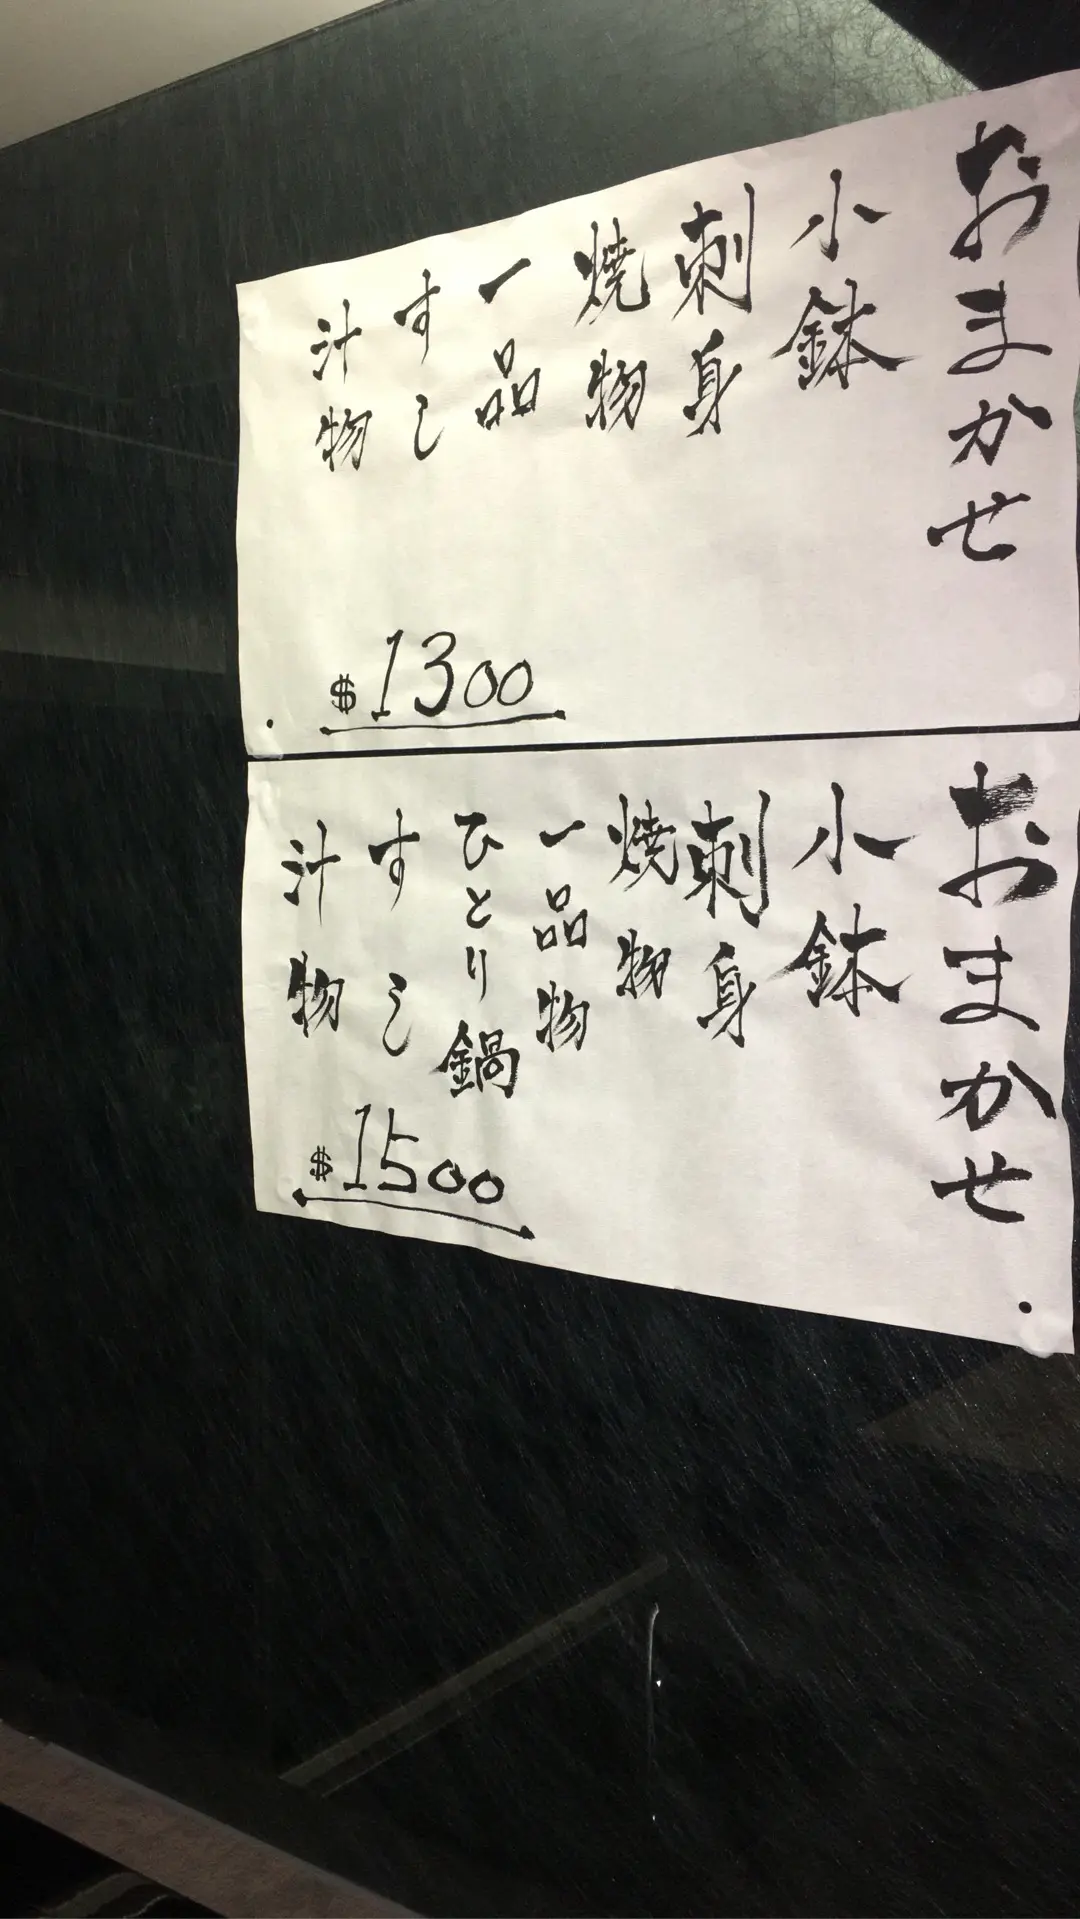 おまかせ
小鉢
刺身
焼物
一品
すし
汁物
$1300
おまかせ
小鉢
刺身
焼物
一品物
ひとり鍋
すし
汁物
$1500